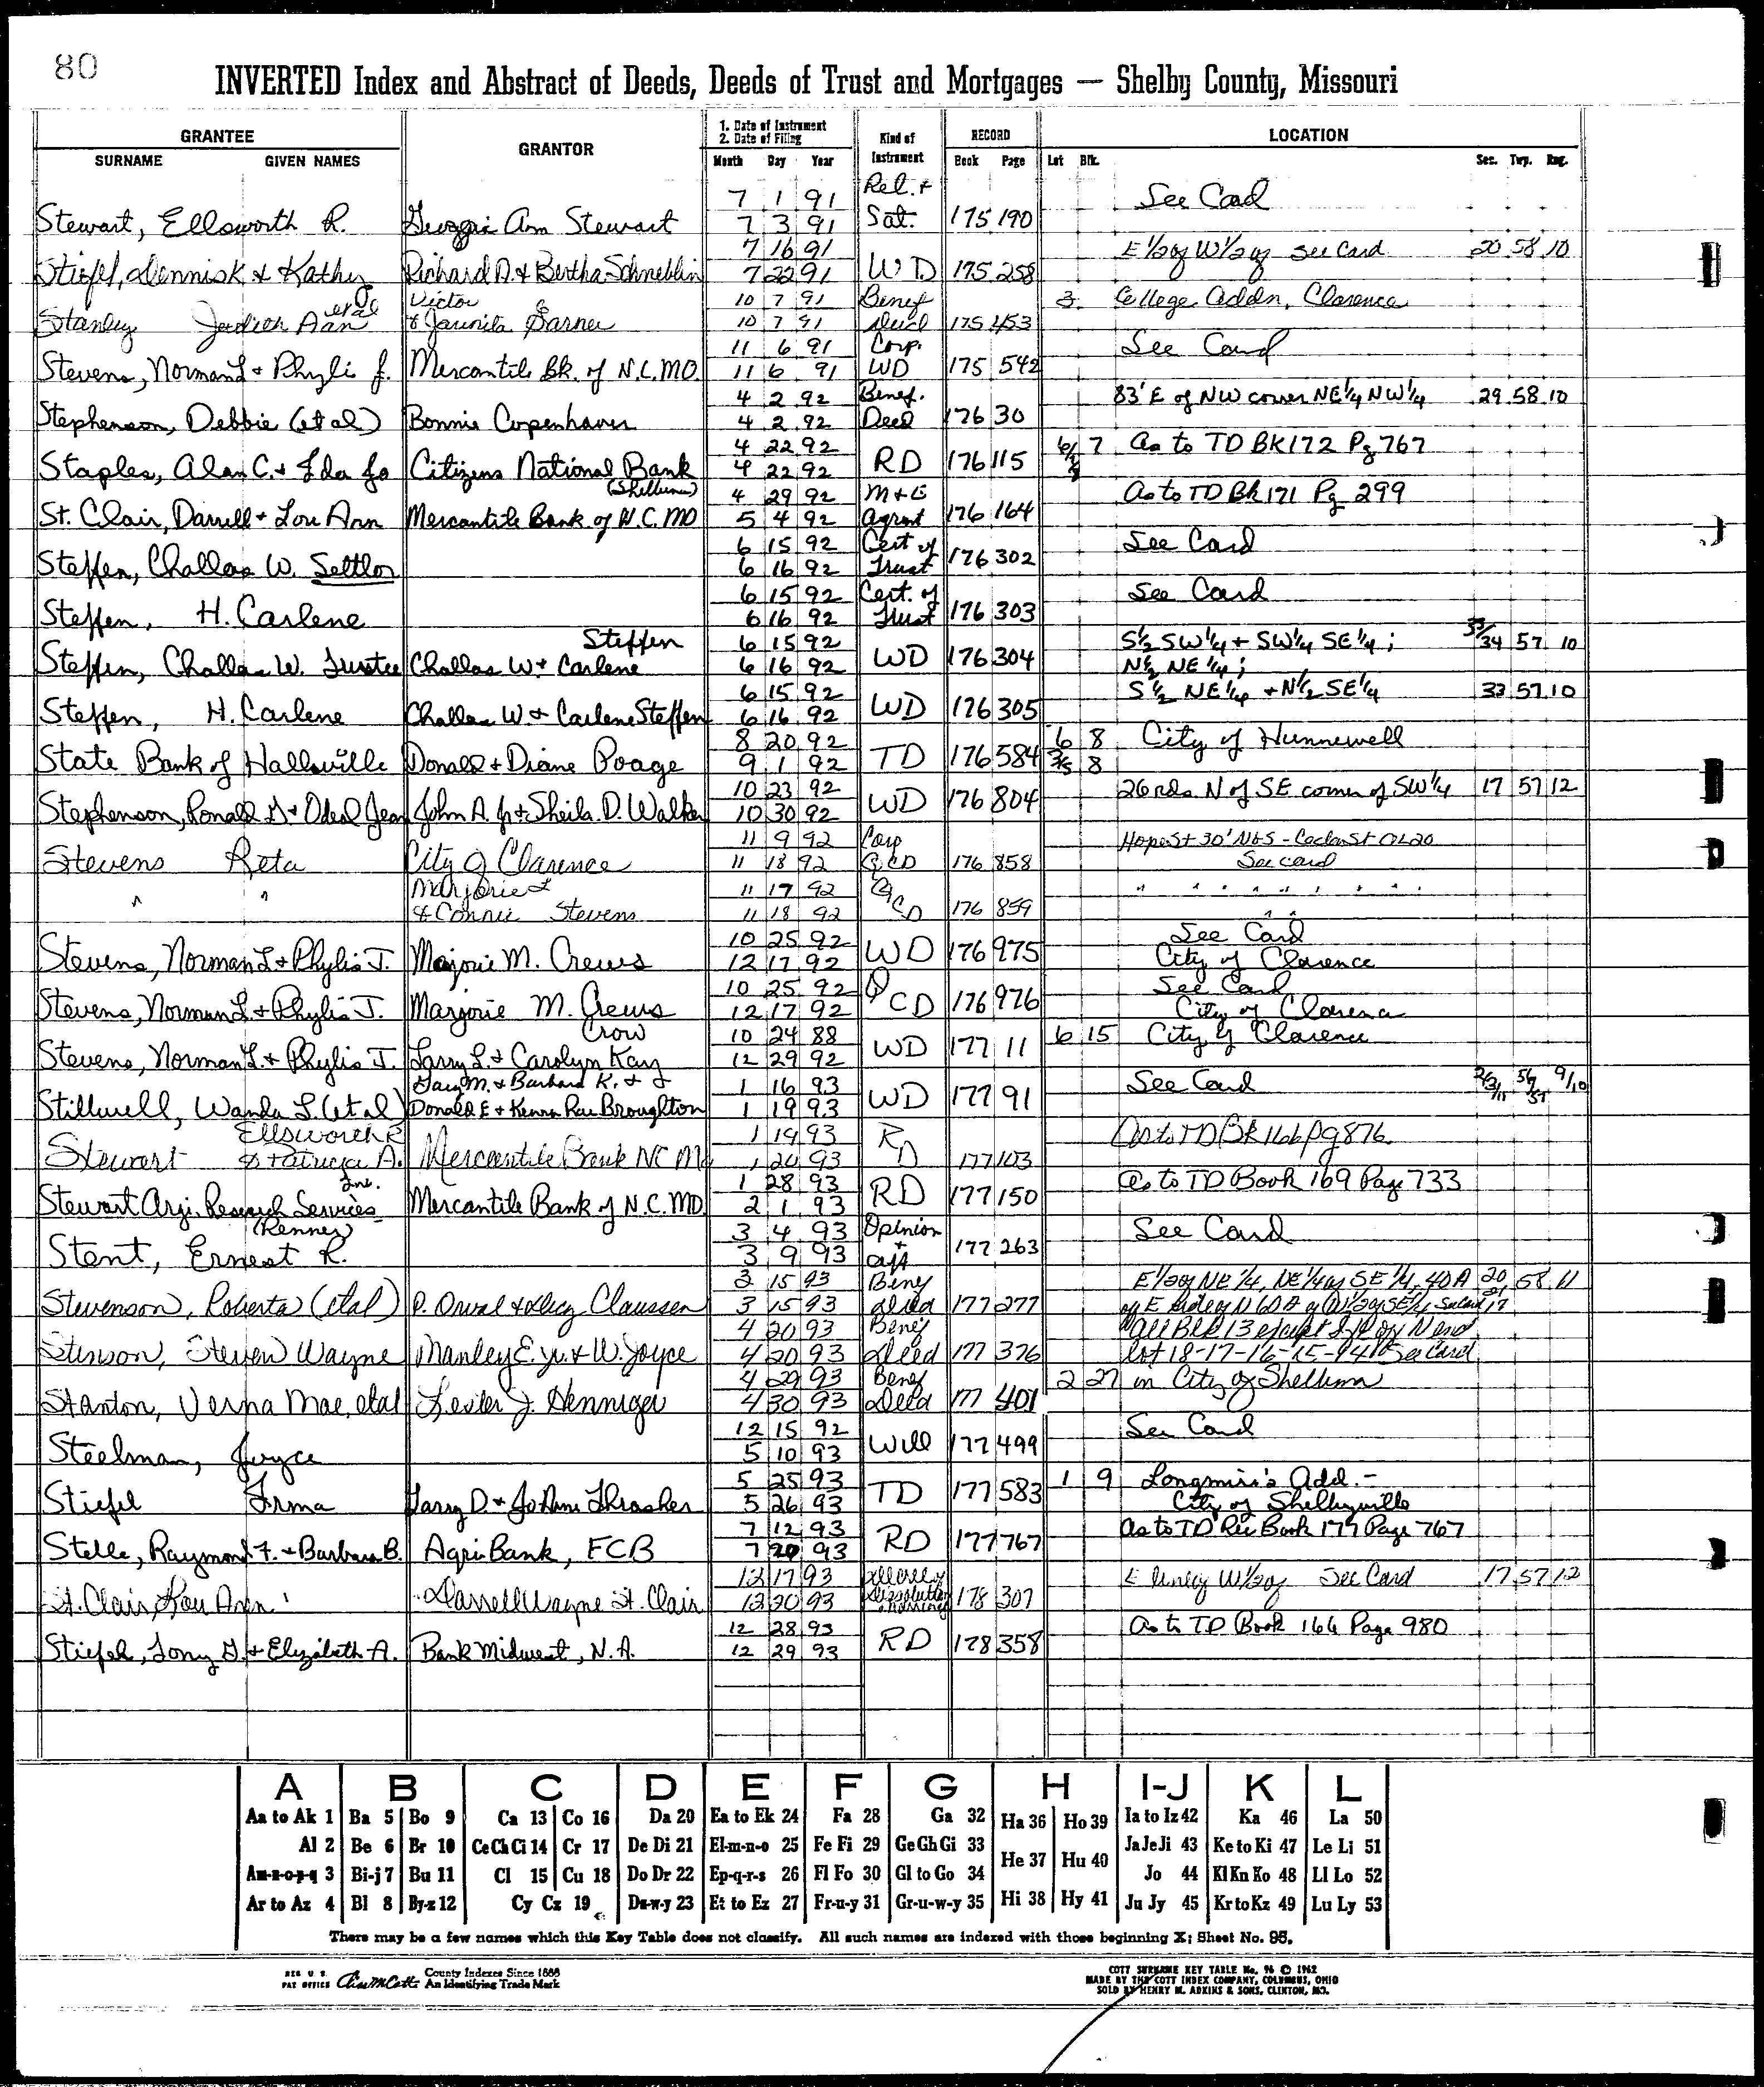 80
INVERTED Index and Abstract of Deeds, Deeds of Trust and Mortgages — Shelby County, Missouri
GRANTEE GRANTOR 1. Date of Instrument 2. Date of Filing Kind of Instrument RECORD LOCATION
SURNAME GIVEN NAMES Month Day Year Book Page Lot Blk. Sec. Twp. Rng.
7 1 91 Rel. + See Card
Stewart, Ellsworth R. Georgia Ann Stewart 7 3 91 Sat. 175 190
7 16 91 E 1/2 of W 1/2 of See Card 20 58 10
Stiefel, Dennis K & Kathy Richard D. & Bertha Schneblin 7 22 91 WD 175 258
et al Victor 10 7 91 Benef 3 College Addn, Clarence
Stanley Judith Ann & Jaunita Garner 10 7 91 Deed 175 453
11 6 91 Corp. See Card
Stevens, Norman L + Phylis J. Mercantile Bk. of N.C. MO. 11 6 91 WD 175 542
4 2 92 Benef. 83' E of NW corner NE 1/4 NW 1/4 29 58 10
Stephenson, Debbie (et al) Bonnie Copenhaver 4 2 92 Deed 176 30
4 22 92 7 As to TD BK 172 Pg 767
Staples, Alan C. + Ida Jo Citizens National Bank 4 22 92 RD 176 115
(Shelbina) 4 29 92 M+E As to TD Bk 171 Pg 299
St. Clair, Darrell + Lou Ann Mercantile Bank of N.C. MO 5 4 92 Agrmt 176 164
6 15 92 Cert of See Card
Steffen, Challas W. Settlor 6 16 92 Trust 176 302
6 15 92 Cert. of See Card
Steffen, H. Carlene 6 16 92 Trust 176 303
Steffen 6 15 92 S 1/2 SW 1/4 + SW 1/4 SE 1/4; 33/34 57 10
Steffen, Challas W. Trustee Challas W + Carlene 6 16 92 WD 176 304 N 1/2 NE 1/4;
6 15 92 S 1/2 NE 1/4 + N 1/2 SE 1/4 33 57 10
Steffen, H. Carlene Challas W. + Carlene Steffen 6 16 92 WD 176 305
8 20 92 6 8 City of Hunnewell
State Bank of Hallsville Donald + Diane Poage 9 1 92 TD 176 584 8
10 23 92 26 rds N of SE corner of SW 1/4 17 57 12
Stephenson, Ronald G + Odeal Jean John A. Jr + Sheila D. Walker 10 30 92 WD 176 804
11 9 92 Corp Hope St 30' N&S - Cedar St OL 20
Stevens Reta City of Clarence 11 18 92 QCD 176 858 See card
Marjorie & 11 17 92 " " " " " " " "
" " & Connie Stevens 11 18 92 QCD 176 859 " "
10 25 92 See Card
Stevens, Norman L + Phylis J. Marjorie M. Crews 12 17 92 WD 176 975 City of Clarence
10 25 92 See Card
Stevens, Norman L + Phylis J. Marjorie M. Crews 12 17 92 QCD 176 976 City of Clarence
Crow 10 24 88 6 15 City of Clarence
Stevens, Norman L. + Phylis J. Larry L. + Carolyn Kay 12 29 92 WD 177 11
Gary M. + Barbara K. + & 1 16 93 See Card 9/10
Stillwell, Wanda L. (et al) Donald E + Kenna Rae Broughton 1 19 93 WD 177 91
Ellsworth R 1 19 93 As to TD Bk 166 pg 876
Stewart & Patricia A. Mercantile Bank NC Mo 1 20 93 RD 177 103
Inc. 1 28 93 As to TD Book 169 Page 733
Stewart Agri. Research Services Mercantile Bank of N.C. MO. 2 1 93 RD 177 150
(Renner) 3 4 93 Opinion See Card
Stent, Ernest R. 3 9 93 + Aff 177 263
3 15 93 Benef E 1/2 of NE 1/4, NE 1/4 of SE 1/4, 40 A 20 58 11
Stevenson, Roberta (etal) P. Orval & Lucy Claussen 3 15 93 Deed 177 277 of E side of N 60 A of W 1/2 of SE 1/4 See Card
4 20 93 Benef All Blk 13 except of N end
Stinson, Steven Wayne Manley E. Jr. & W. Joyce 4 20 93 Deed 177 376 lot 18-17-16-15-14 See Card
4 29 93 Benef 2 27 in City of Shelbina
Stanton, Verna Mae, etal Lester J. Henniger 4 30 93 Deed 177 401
12 15 92 See Card
Steelman, Joyce 5 10 93 Will 177 499
5 25 93 1 9 Longmire's Add. -
Stiefel Irma Larry D. + Jo Ann Thrasher 5 26 93 TD 177 583 City of Shelbyville
7 12 93 As to TD Rec Book 177 Page 767
Stelle, Raymond F. + Barbara B. AgriBank, FCB 7 20 93 RD 177 767
12 17 93 Decree of E line of W 1/2 of See Card 17 57 12
St. Clair, Lou Ann Darrell Wayne St. Clair 12 20 93 Dissolution Marriage 178 307
12 28 93 As to TD Book 166 Page 980
Stiefel, Tony G. + Elizabeth A. Bank Midwest, N.A. 12 29 93 RD 178 358
A B C D E F G H I-J K L
Aa to Ak 1 Ba 5 Bo 9 Ca 13 Co 16 Da 20 Ea to Ek 24 Fa 28 Ga 32 Ha 36 Ho 39 Ia to Iz 42 Ka 46 La 50
Al 2 Be 6 Br 10 Ce Ch Ci 14 Cr 17 De Di 21 El-m-n-o 25 Fe Fi 29 Ge Gh Gi 33 He 37 Hu 40 Ja Je Ji 43 Ke to Ki 47 Le Li 51
Am-n-o-p-q 3 Bi-j 7 Bu 11 Cl 15 Cu 18 Do Dr 22 Ep-q-r-s 26 Fl Fo 30 Gl to Go 34 Jo 44 Kl Kn Ko 48 Ll Lo 52
Ar to Az 4 Bl 8 By-z 12 Cy Cz 19 Du-w-y 23 Et to Ez 27 Fr-u-y 31 Gr-u-w-y 35 Hi 38 Hy 41 Ju Jy 45 Kr to Kz 49 Lu Ly 53
There may be a few names which this Key Table does not classify. All such names are indexed with those beginning X; Sheet No. 95.
REG U. S. PAT OFFICE County Indexes Since 1888 An Identifying Trade Mark
COTT SURNAME KEY TABLE No. 96 © 1962
MADE BY THE COTT INDEX COMPANY, COLUMBUS, OHIO
SOLD BY HENRY M. ADKINS & SONS, CLINTON, MO.